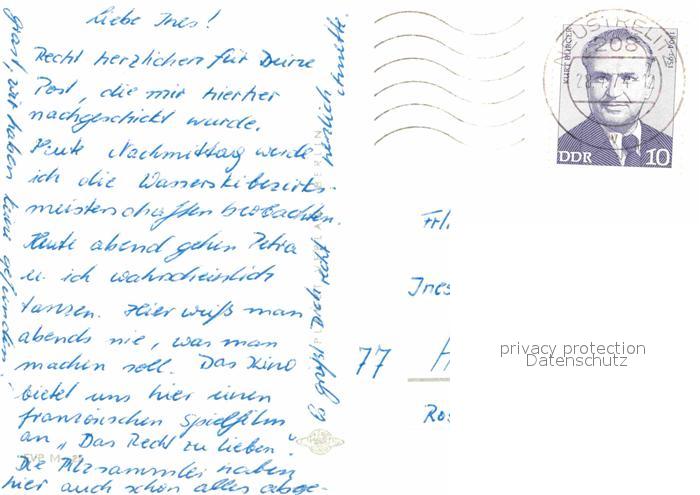 Liebe Ines!
Recht herzlichen für Deine
Post, die mir hierher
nachgeschickt wurde.
Heute Nachmittag werde
ich die Wasserskibezirks-
meisterschaften beobachten.
Heute abend gehen Petra
u. ich wahrscheinlich
tanzen. Hier weiß man
abends nie, was man
machen soll. Das Kino
bietet uns hier einen
französischen Spielfilm
an „Das Recht zu lieben".
Die Pilzsammler haben
hier auch schon alles abge-
grast, wir haben keine gefunden.
Es grüßt Dich recht herzlich Anette.
NEUSTRELITZ
208
KURT BÜRGER
1894-1951
DDR 10
Frl.
Ines
77
privacy protection
Datenschutz